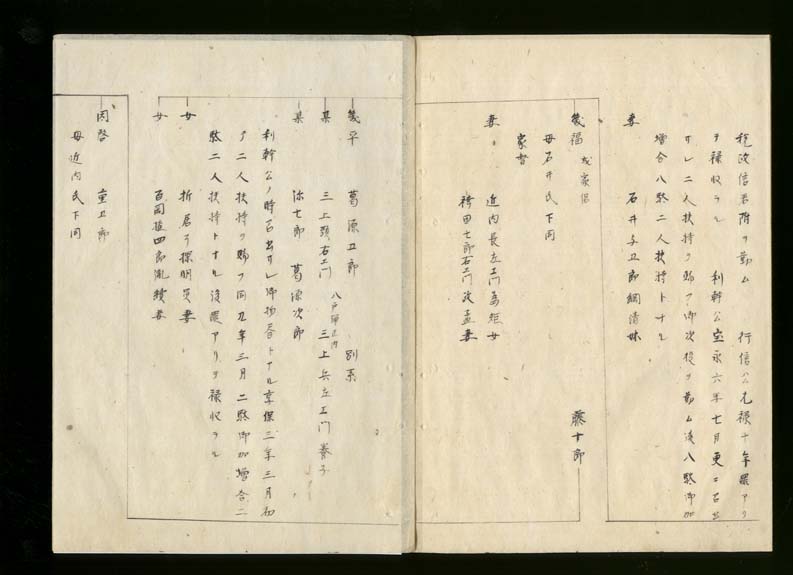 役政信君附ヲ勤ム　行信公元禄十年罪アリ
テ禄収ラル　利幹公宝永六年七月更ニ召出
サレ二人扶持ヲ賜フ御次役ヲ勤ム後八駄御加
増合八駄二人扶持トナル
妻　石井与五郎綱清妹
幾福　或豪侶　藤十郎
母石井氏下同
家督
妻　近内長左エ門 女
袴田七郎右エ門政孟妻
幾平　葛源五郎　別系
某　三上弥右エ門　八戸弾正内　三上兵左エ門養子
某　弥七郎　葛源次郎
利幹公ノ時召出サレ御物番トナル享保三年三月初
テ二人扶持ヲ賜フ同九年三月二駄御加増合二
駄二人扶持トナル後罪アリテ禄収ラル
女　折居 妻
女　百岡 四郎 妻
内啓　重五郎
母近内氏下同